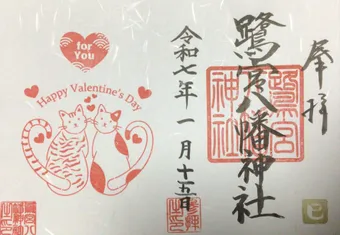 奉拝
鷺宮八幡神社
令和七年一月十五日
for
You
Happy Valentine's Day
鷺宮
八幡
神社
巳